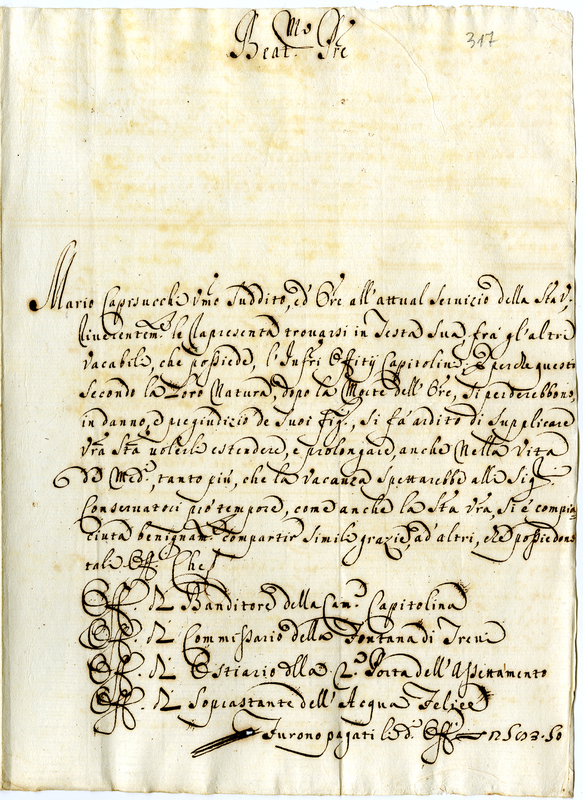 Beat.mo Pre
317
Mario Capisucchi Vme Suddito, ed Ore all'attual Servizio della Sta V.
Riverentem.te le Rapresenta trovarsi in Testa Sua, frà gl'altri
vacabili, che possiede, l'Infri Offitij Capitolini, E perche questi
Secondo la Loro Natura, dopo la Morte dell'Ore, Si perderebbono,
in danno, e pregiudizio de Suoi Figli, Si fà ardito di Supplicare
Vra Stà volerli estendere, e prolongare anche Nella Vita
de Med.i, tanto più, che la Vacanza Spettarebbe alli Sig.ri
Conservatori prò tempore, come anche la Sta Vra, Si è compia
ciuta benignam.te compartir Simili grazie, ad altri, che possiedono
tali Off. Che
Off. di Banditore della Cam.a Capitolina
Off. di Commissario della Fontana di Trevi
Off. di Ostiario dlla Porta dell'Assettamento
Off. di Soprastante dell'Acqua Felice
Furono pagati li d.i Off.